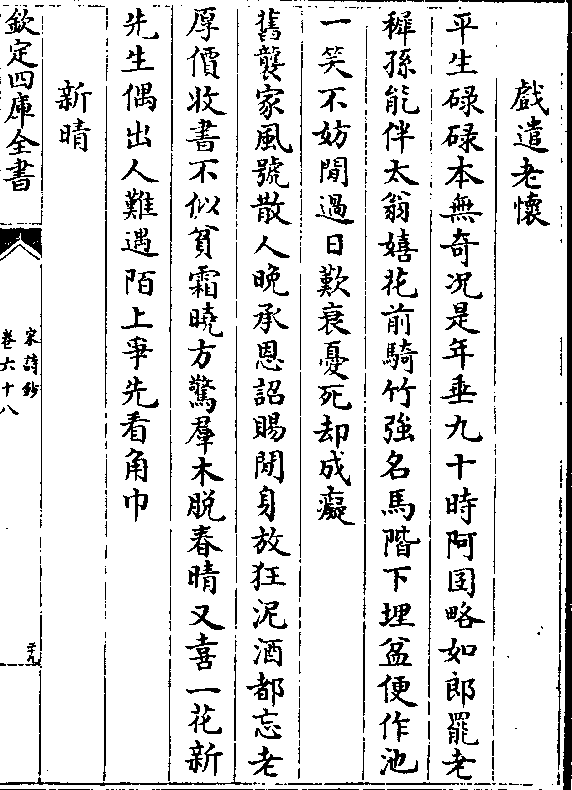 戲遣老懷
平生碌碌本無奇况是年垂九十時阿囝略如郎罷老
穉孫能伴太翁嬉花前騎竹强名馬階下埋盆便作池
一笑不妨閒過日歎衰憂死却成癡
舊襲家風號散人晚承恩詔賜閒身放狂泥酒都忘老
厚價收書不似貧霜曉方驚羣木脱春晴又喜一花新
先生偶出人難遇陌上爭先看角巾
新晴
欽定四庫全書
宋詩鈔
卷六十八